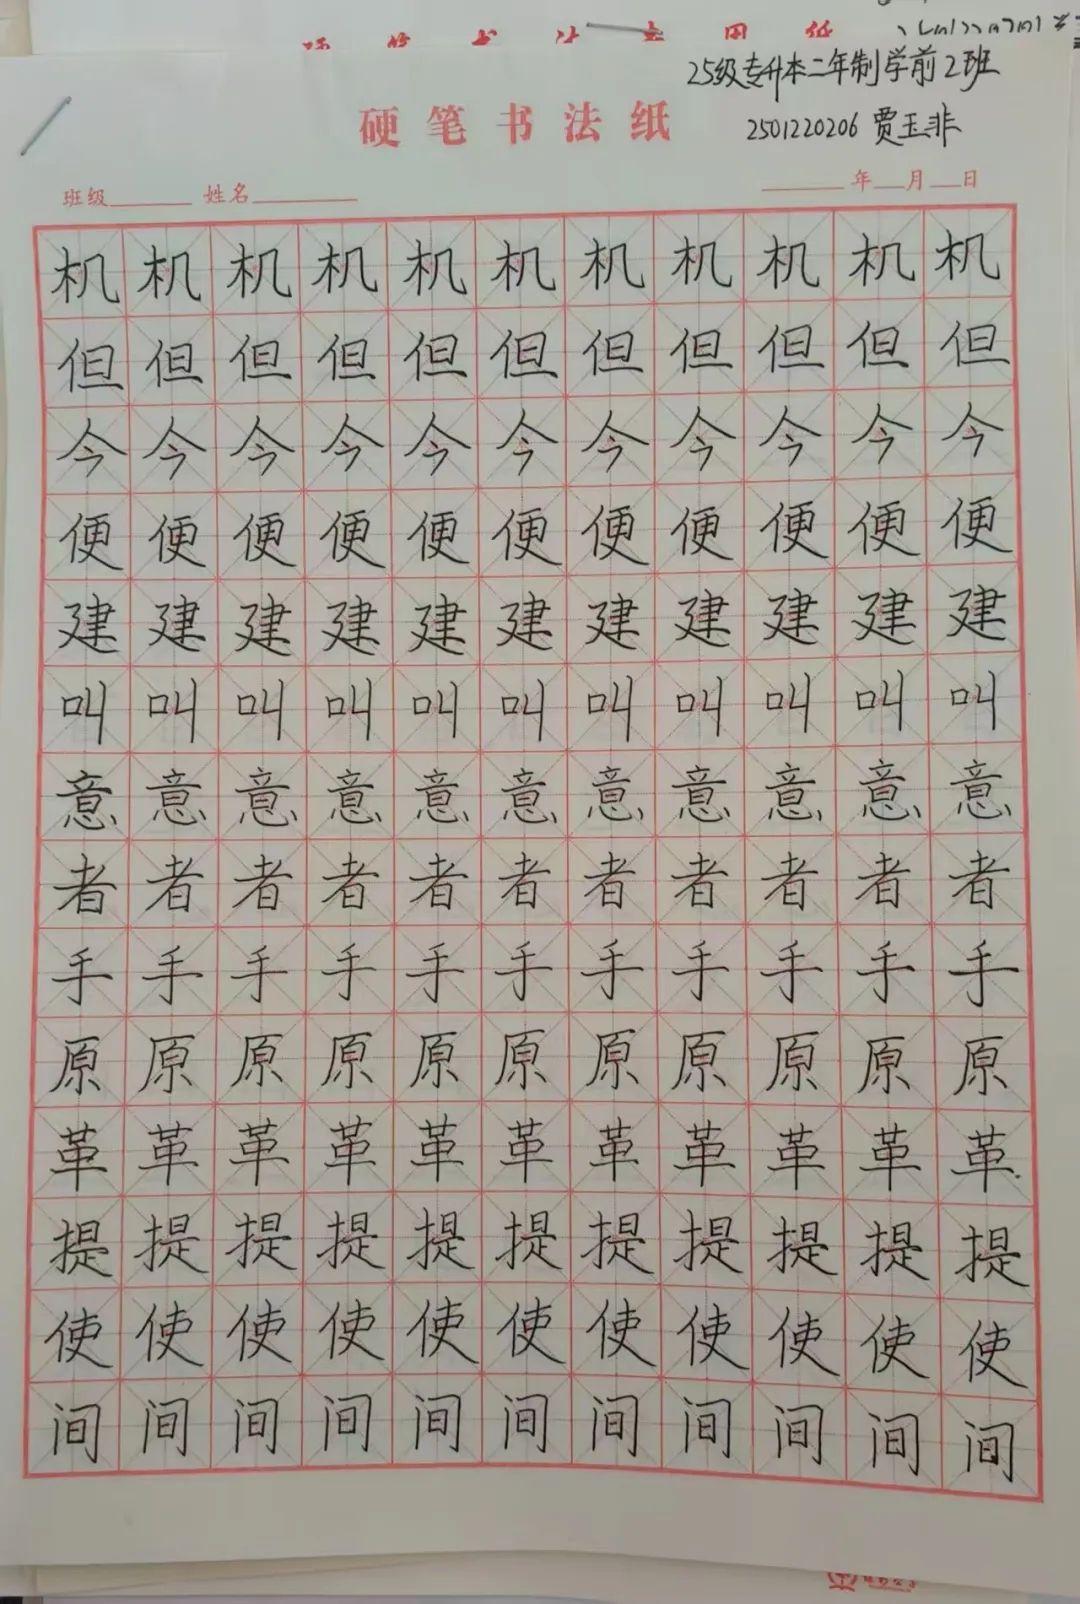 25级专升本二年制学前2班
硬笔书法纸
2501220206 贾玉非
班级 姓名 年 月 日
机机机机机机机机机机机
但但但但但但但但但但但
今今今今今今今今今今今
便便便便便便便便便便便
建建建建建建建建建建建
叫叫叫叫叫叫叫叫叫叫叫
意意意意意意意意意意意
者者者者者者者者者者者
手手手手手手手手手手手
原原原原原原原原原原原
革革革革革革革革革革革
提提提提提提提提提提提
使使使使使使使使使使使
间间间间间间间间间间间